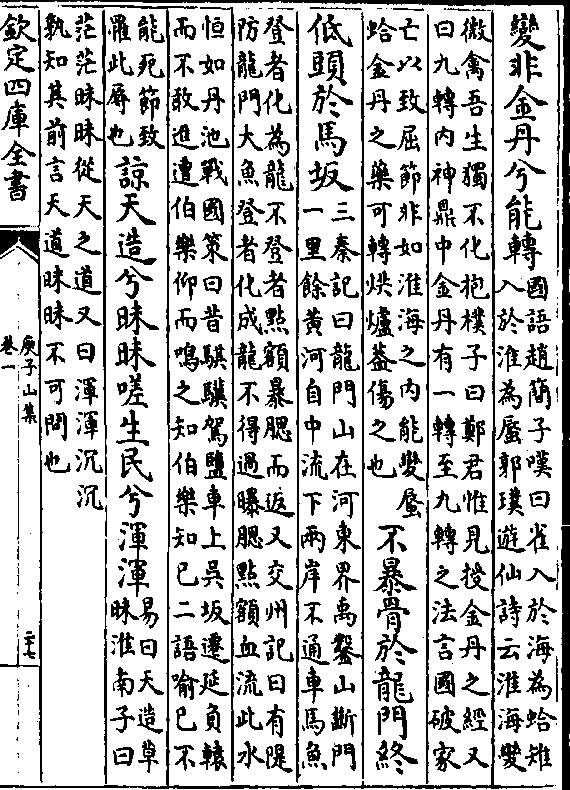 變非金丹兮能轉國語趙簡子嘆曰雀入於海為蛤雉
入於淮為蜃郭璞遊仙詩云淮海變
微禽吾生獨不化抱樸子曰鄭君惟見授金丹之經又
曰九轉内神鼎中金丹有一轉至九轉之法言國破家
亡以致屈節非如淮海之内能變蜃
蛤金丹之藥可轉烘爐蓋傷之也不暴骨於龍門終
低頭於馬坂三秦記曰龍門山在河東界禹鑿山斷門
一里餘黄河自中流下兩岸不通車馬魚
登者化為龍不登者點額暴腮而返又交州記曰有隄
防龍門大魚登者化成龍不得過曝腮點額血流此水
恒如丹池戰國策曰昔騏驥駕鹽車上吳坂遷延負轅
而不敢進遭伯樂仰而鳴之知伯樂知已二語喻已不
能死節致
罹此辱也諒天造兮昧昧嗟生民兮渾渾易曰天造草
昧淮南子曰
茫茫昧昧從天之道又曰渾渾沉沉
孰知其前言天道昧昧不可問也
欽定四庫全書
庾子山集
卷一
二十七